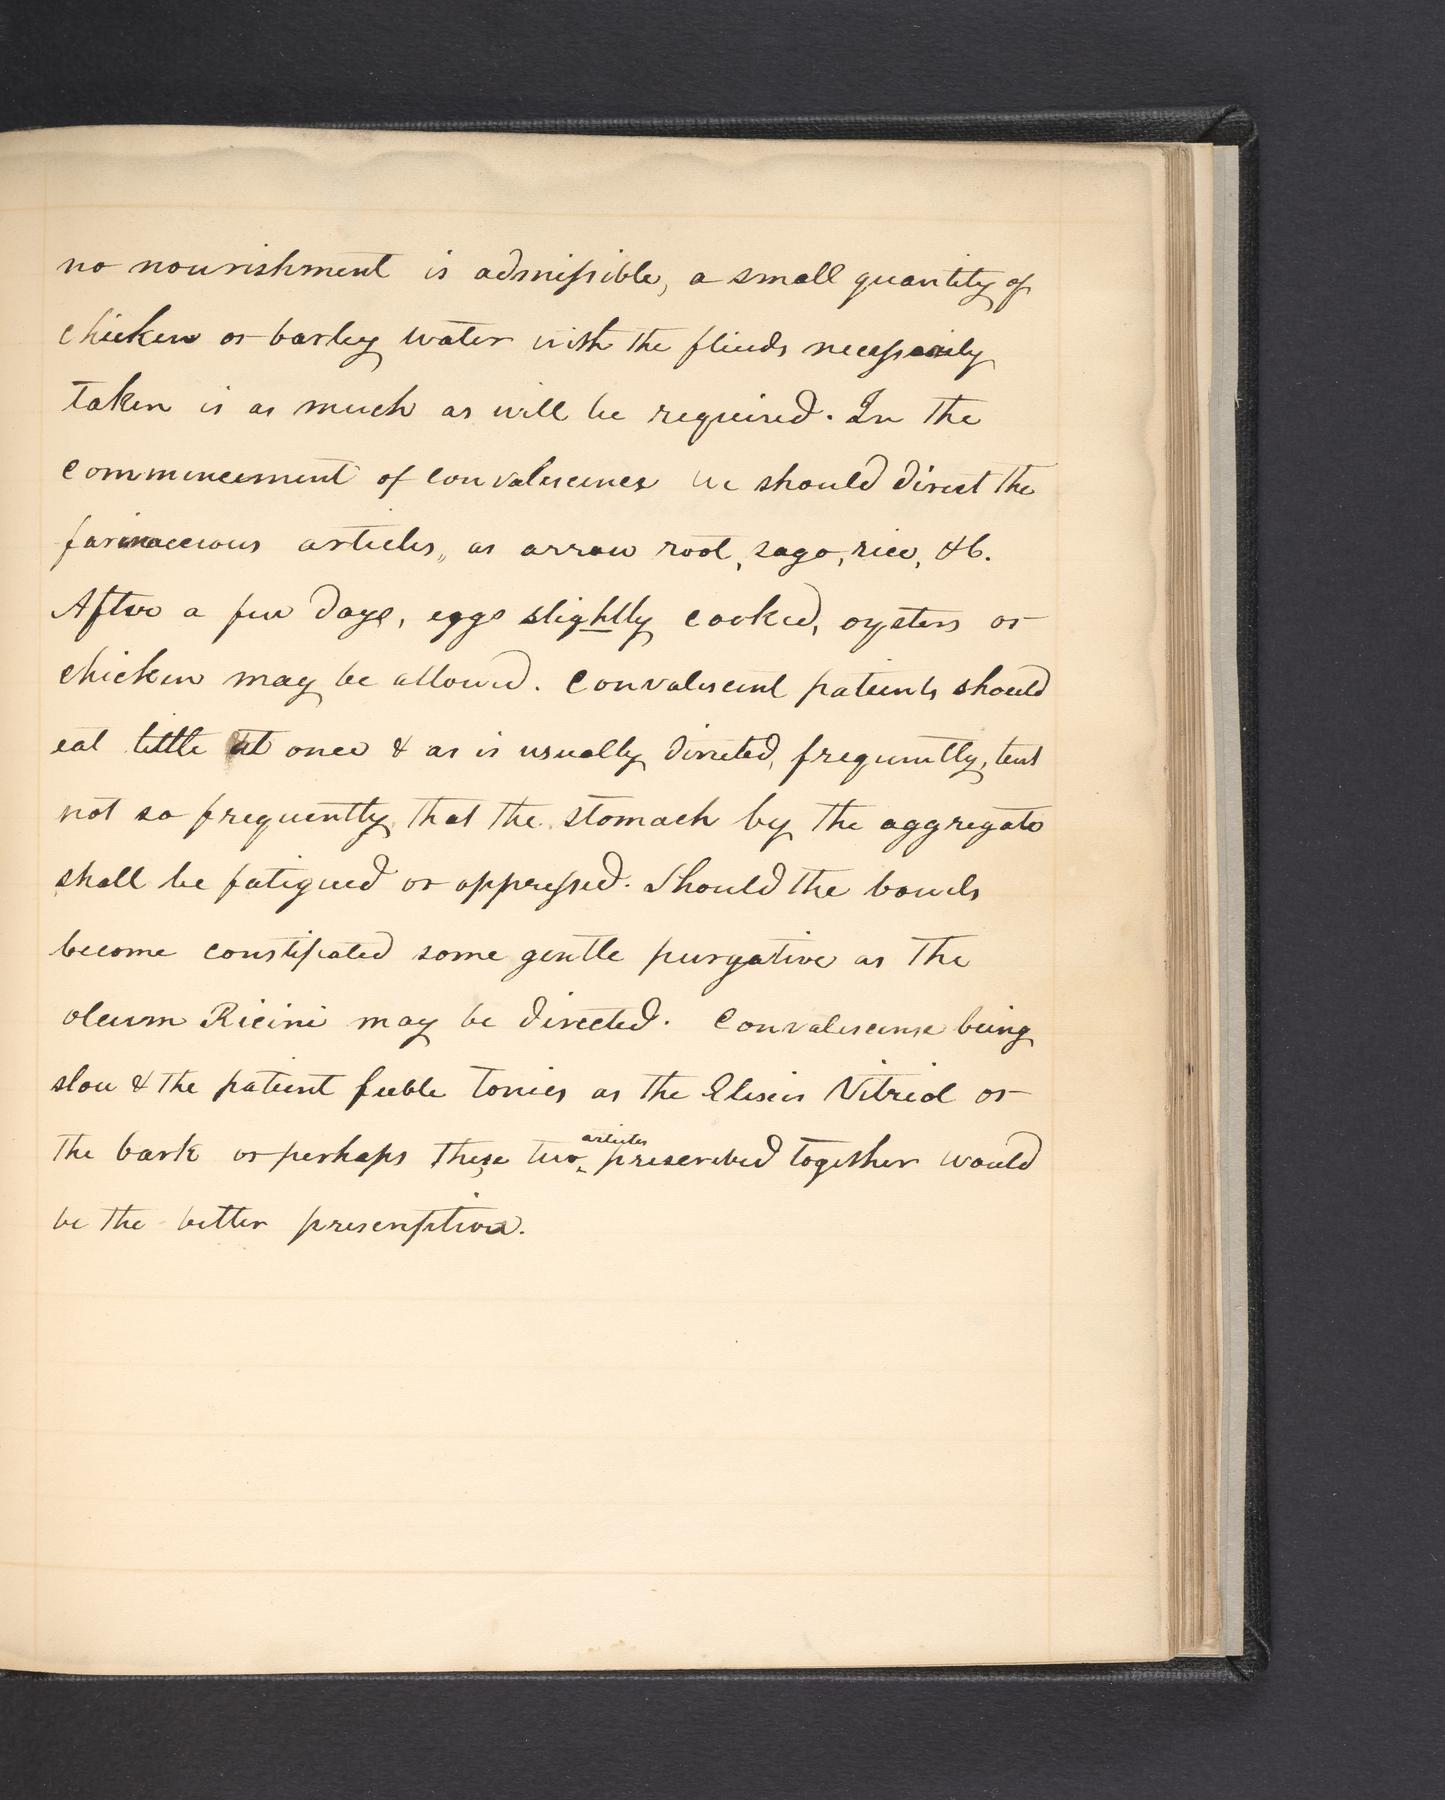 no nourishment is admissible, a small quantity of
chicken or barley water with the fluids necessarily
taken is as much as will be required. In the
commencement of convalescence we should direct the
farinaceous articles, as arrow root, sago, rice, &c.
After a few days, eggs slightly cooked, oysters or
chicken may be allowed. Convalescent patients should
eat little at once & as is usually directed, frequently, but
not so frequently that the stomach by the aggregate
shall be fatigued or oppressed. Should the bowels
become constipated some gentle purgative as the
oleum Ricini may be directed. Convalescense being
slow & the patient feeble tonics as the Elixir Vitriol or
the bark or perhaps these two articles prescribed together would
be the better prescription.